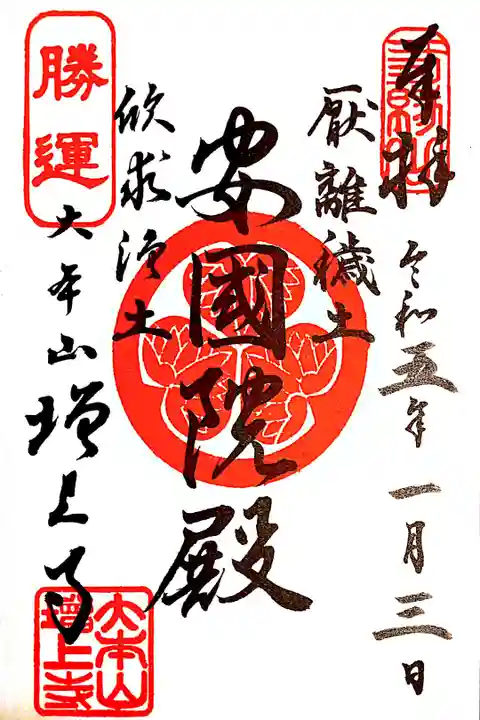 奉拝
令和五年一月三日
厭離穢土
安國院殿
欣求浄土
勝運
大本山増上寺
大本山
增上寺